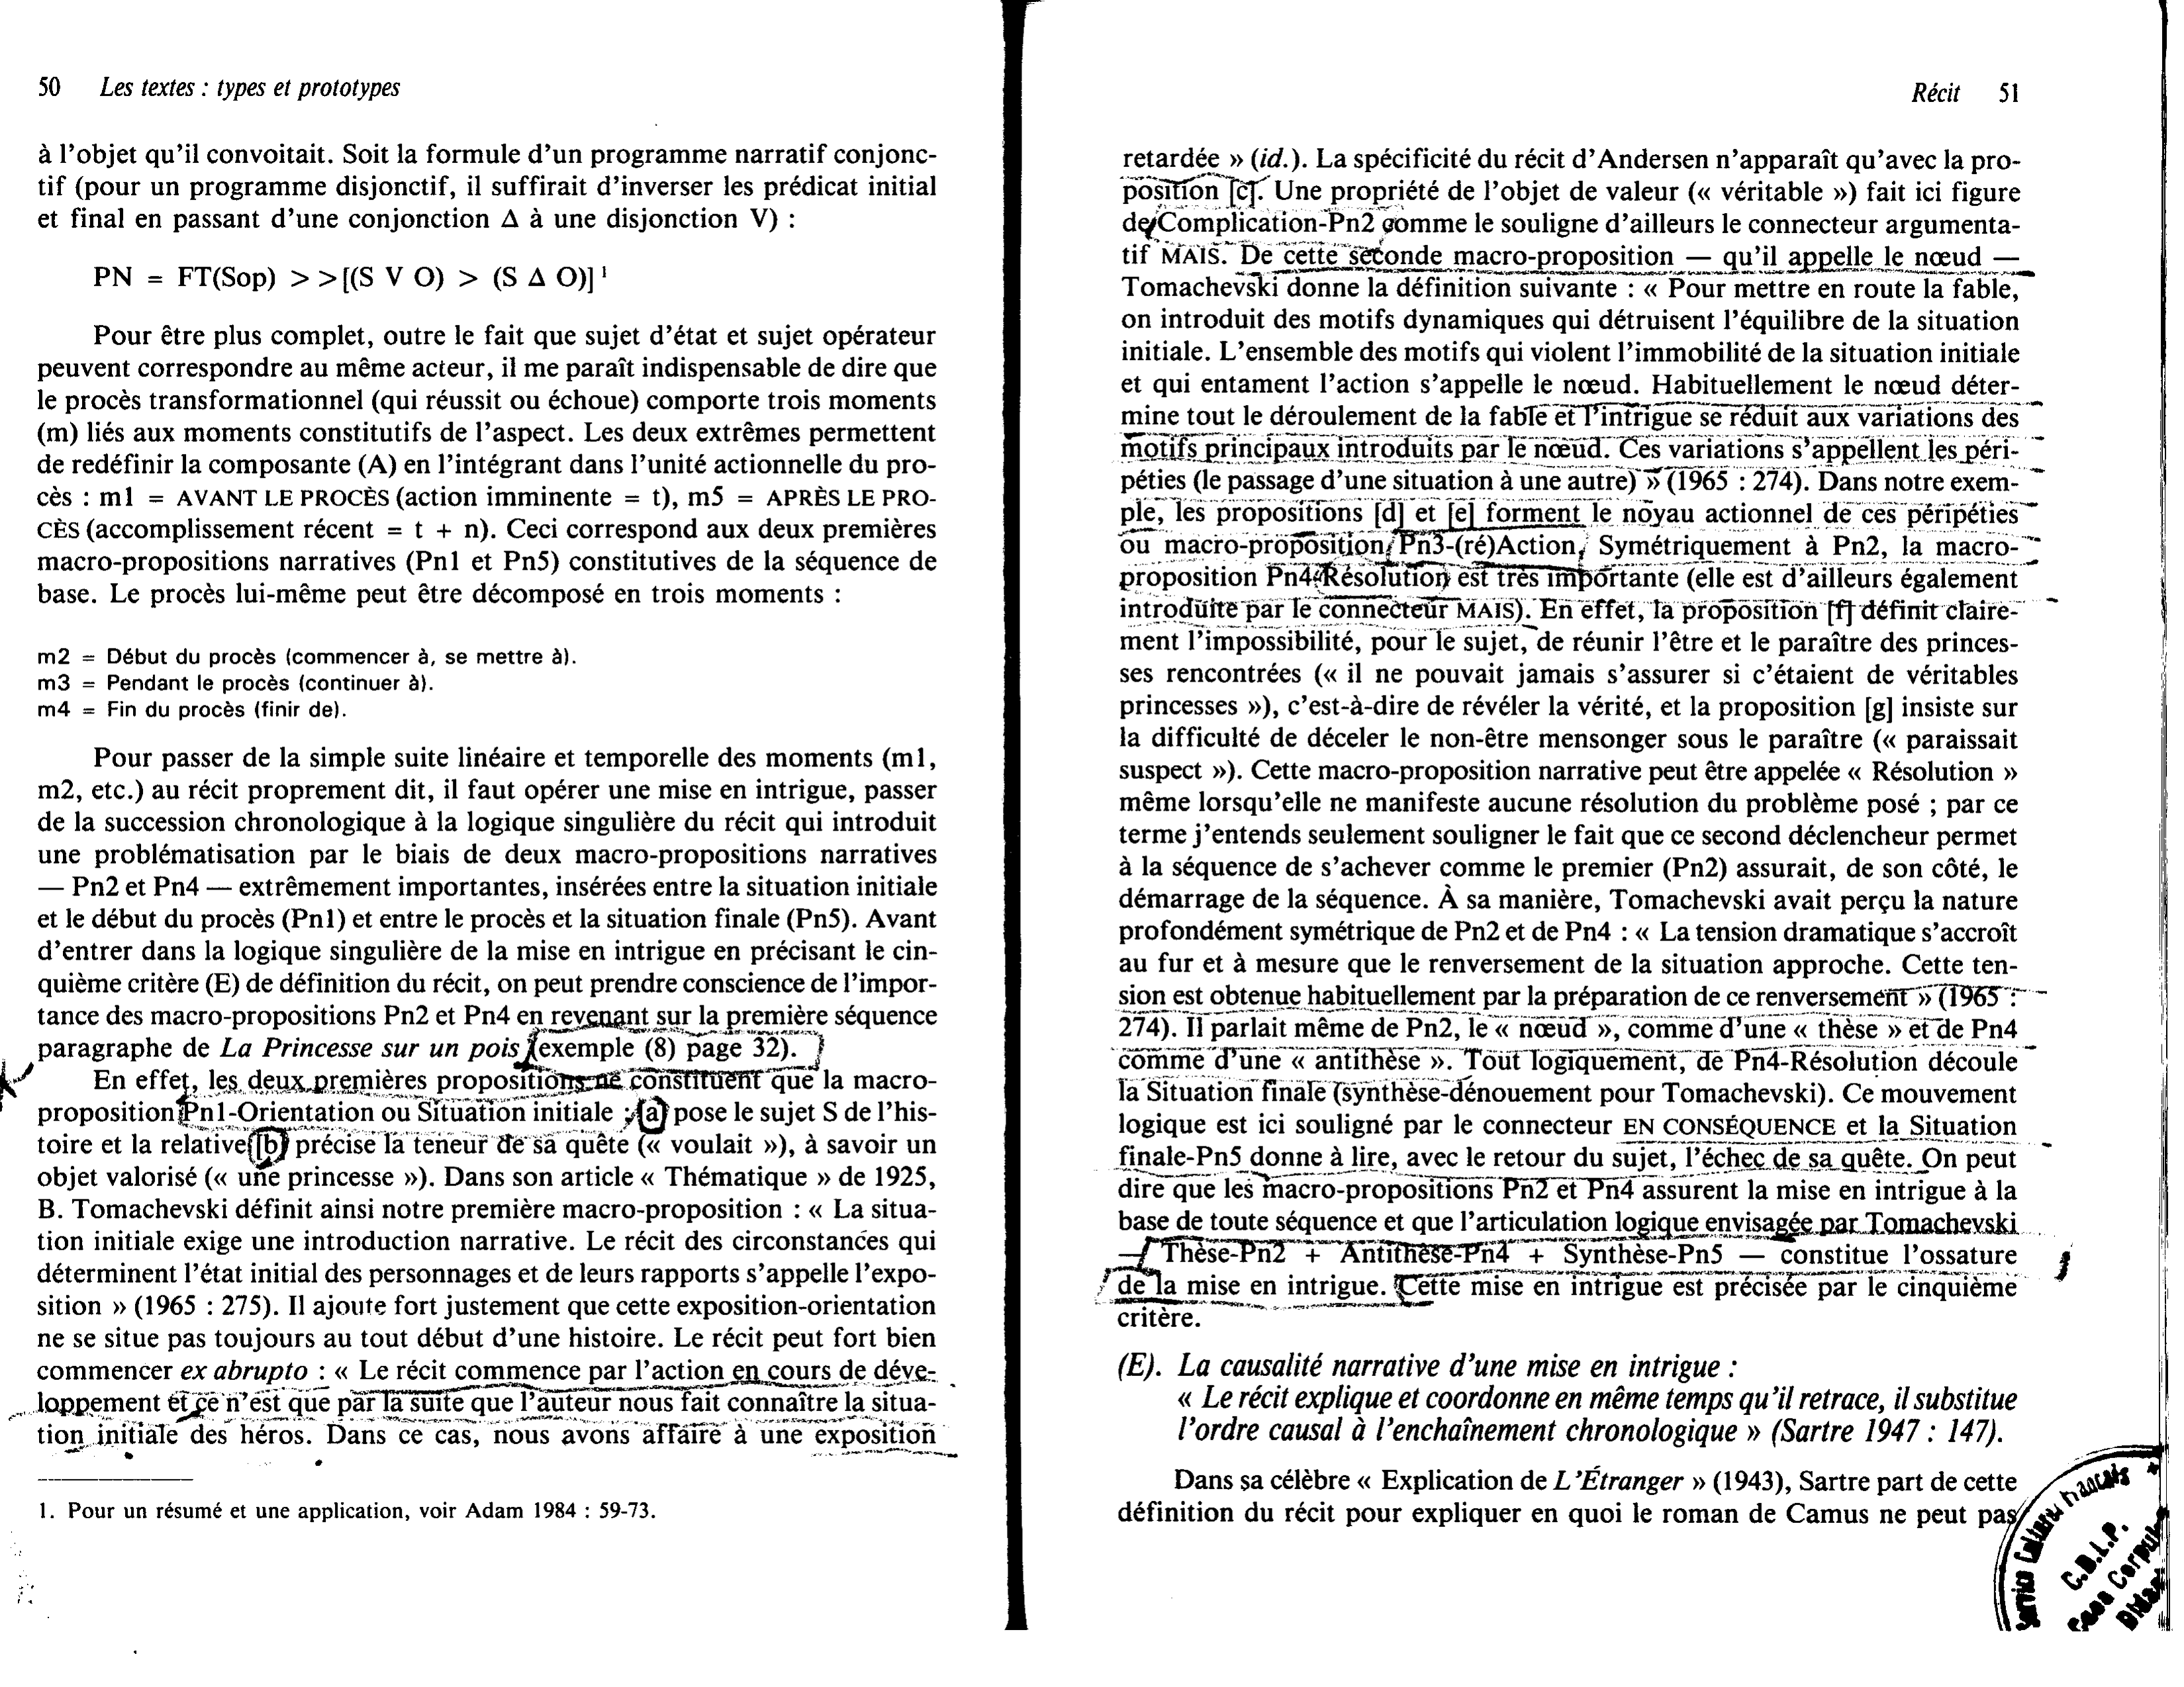 50 Les textes : types et prototypes
à l'objet qu'il convoitait. Soit la formule d'un programme narratif conjonc-
tif (pour un programme disjonctif, il suffirait d'inverser les prédicat initial
et final en passant d'une conjonction Δ à une disjonction V) :
PN = FT(Sop) > >[(S V O) > (S Δ O)] 1
Pour être plus complet, outre le fait que sujet d'état et sujet opérateur
peuvent correspondre au même acteur, il me paraît indispensable de dire que
le procès transformationnel (qui réussit ou échoue) comporte trois moments
(m) liés aux moments constitutifs de l'aspect. Les deux extrêmes permettent
de redéfinir la composante (A) en l'intégrant dans l'unité actionnelle du pro-
cès : m1 = AVANT LE PROCÈS (action imminente = t), m5 = APRÈS LE PRO-
CÈS (accomplissement récent = t + n). Ceci correspond aux deux premières
macro-propositions narratives (Pn1 et Pn5) constitutives de la séquence de
base. Le procès lui-même peut être décomposé en trois moments :
m2 = Début du procès (commencer à, se mettre à).
m3 = Pendant le procès (continuer à).
m4 = Fin du procès (finir de).
Pour passer de la simple suite linéaire et temporelle des moments (m1,
m2, etc.) au récit proprement dit, il faut opérer une mise en intrigue, passer
de la succession chronologique à la logique singulière du récit qui introduit
une problématisation par le biais de deux macro-propositions narratives
— Pn2 et Pn4 — extrêmement importantes, insérées entre la situation initiale
et le début du procès (Pn1) et entre le procès et la situation finale (Pn5). Avant
d'entrer dans la logique singulière de la mise en intrigue en précisant le cin-
quième critère (E) de définition du récit, on peut prendre conscience de l'impor-
tance des macro-propositions Pn2 et Pn4 en revenant sur la première séquence
paragraphe de La Princesse sur un pois (exemple (8) page 32).
En effet, les deux premières propositions ne constituent que la macro-
proposition Pn1-Orientation ou Situation initiale ; [a] pose le sujet S de l'his-
toire et la relative [b] précise la teneur de sa quête (« voulait »), à savoir un
objet valorisé (« une princesse »). Dans son article « Thématique » de 1925,
B. Tomachevski définit ainsi notre première macro-proposition : « La situa-
tion initiale exige une introduction narrative. Le récit des circonstances qui
déterminent l'état initial des personnages et de leurs rapports s'appelle l'expo-
sition » (1965 : 275). Il ajoute fort justement que cette exposition-orientation
ne se situe pas toujours au tout début d'une histoire. Le récit peut fort bien
commencer ex abrupto : « Le récit commence par l'action en cours de déve-
loppement et ce n'est que par la suite que l'auteur nous fait connaître la situa-
tion initiale des héros. Dans ce cas, nous avons affaire à une exposition
1. Pour un résumé et une application, voir Adam 1984 : 59-73.
Récit 51
retardée » (id.). La spécificité du récit d'Andersen n'apparaît qu'avec la pro-
position [c]. Une propriété de l'objet de valeur (« véritable ») fait ici figure
de Complication-Pn2 comme le souligne d'ailleurs le connecteur argumenta-
tif MAIS. De cette seconde macro-proposition — qu'il appelle le nœud —
Tomachevski donne la définition suivante : « Pour mettre en route la fable,
on introduit des motifs dynamiques qui détruisent l'équilibre de la situation
initiale. L'ensemble des motifs qui violent l'immobilité de la situation initiale
et qui entament l'action s'appelle le nœud. Habituellement le nœud déter-
mine tout le déroulement de la fable et l'intrigue se réduit aux variations des
motifs principaux introduits par le nœud. Ces variations s'appellent les péri-
péties (le passage d'une situation à une autre) » (1965 : 274). Dans notre exem-
ple, les propositions [d] et [e] forment le noyau actionnel de ces péripéties
ou macro-proposition Pn3-(ré)Action. Symétriquement à Pn2, la macro-
proposition Pn4-Résolution est très importante (elle est d'ailleurs également
introduite par le connecteur MAIS). En effet, la proposition [f] définit claire-
ment l'impossibilité, pour le sujet, de réunir l'être et le paraître des princes-
ses rencontrées (« il ne pouvait jamais s'assurer si c'étaient de véritables
princesses »), c'est-à-dire de révéler la vérité, et la proposition [g] insiste sur
la difficulté de déceler le non-être mensonger sous le paraître (« paraissait
suspect »). Cette macro-proposition narrative peut être appelée « Résolution »
même lorsqu'elle ne manifeste aucune résolution du problème posé ; par ce
terme j'entends seulement souligner le fait que ce second déclencheur permet
à la séquence de s'achever comme le premier (Pn2) assurait, de son côté, le
démarrage de la séquence. À sa manière, Tomachevski avait perçu la nature
profondément symétrique de Pn2 et de Pn4 : « La tension dramatique s'accroît
au fur et à mesure que le renversement de la situation approche. Cette ten-
sion est obtenue habituellement par la préparation de ce renversement » (1965 :
274). Il parlait même de Pn2, le « nœud », comme d'une « thèse » et de Pn4
comme d'une « antithèse ». Tout logiquement, de Pn4-Résolution découle
la Situation finale (synthèse-dénouement pour Tomachevski). Ce mouvement
logique est ici souligné par le connecteur EN CONSÉQUENCE et la Situation
finale-Pn5 donne à lire, avec le retour du sujet, l'échec de sa quête. On peut
dire que les macro-propositions Pn2 et Pn4 assurent la mise en intrigue à la
base de toute séquence et que l'articulation logique envisagée par Tomachevski
— Thèse-Pn2 + Antithèse-Pn4 + Synthèse-Pn5 — constitue l'ossature
de la mise en intrigue. Cette mise en intrigue est précisée par le cinquième
critère.
(E). La causalité narrative d'une mise en intrigue :
« Le récit explique et coordonne en même temps qu'il retrace, il substitue
l'ordre causal à l'enchaînement chronologique » (Sartre 1947 : 147).
Dans sa célèbre « Explication de L'Étranger » (1943), Sartre part de cette
définition du récit pour expliquer en quoi le roman de Camus ne peut pas
Service Culturel Français